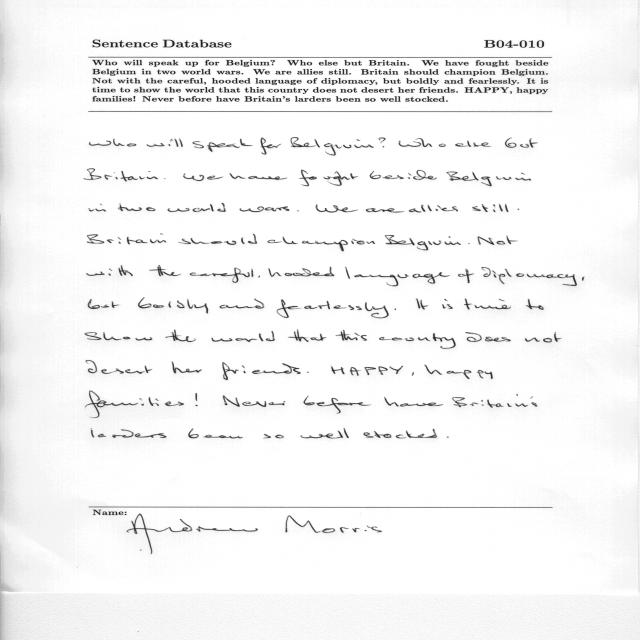 Sentence Database B04-010
Who will speak up for Belgium? Who else but Britain. We have fought beside
Belgium in two world wars. We are allies still. Britain should champion Belgium.
Not with the careful, hooded language of diplomacy, but boldly and fearlessly. It is
time to show the world that this country does not desert her friends. HAPPY, happy
families! Never before have Britain's larders been so well stocked.
who will speak for Belgium? Who else but
Britain. We have fought beside Belgium
in two world wars. We are allies still.
Britain should champion Belgium. Not
with the careful, hooded language of diplomacy,
but boldly and fearlessly. It is time to
show the world that this country does not
desert her friends. HAPPY, happy
families! Never before have Britain's
larders been so well stocked.
Name:
Andrew Morris